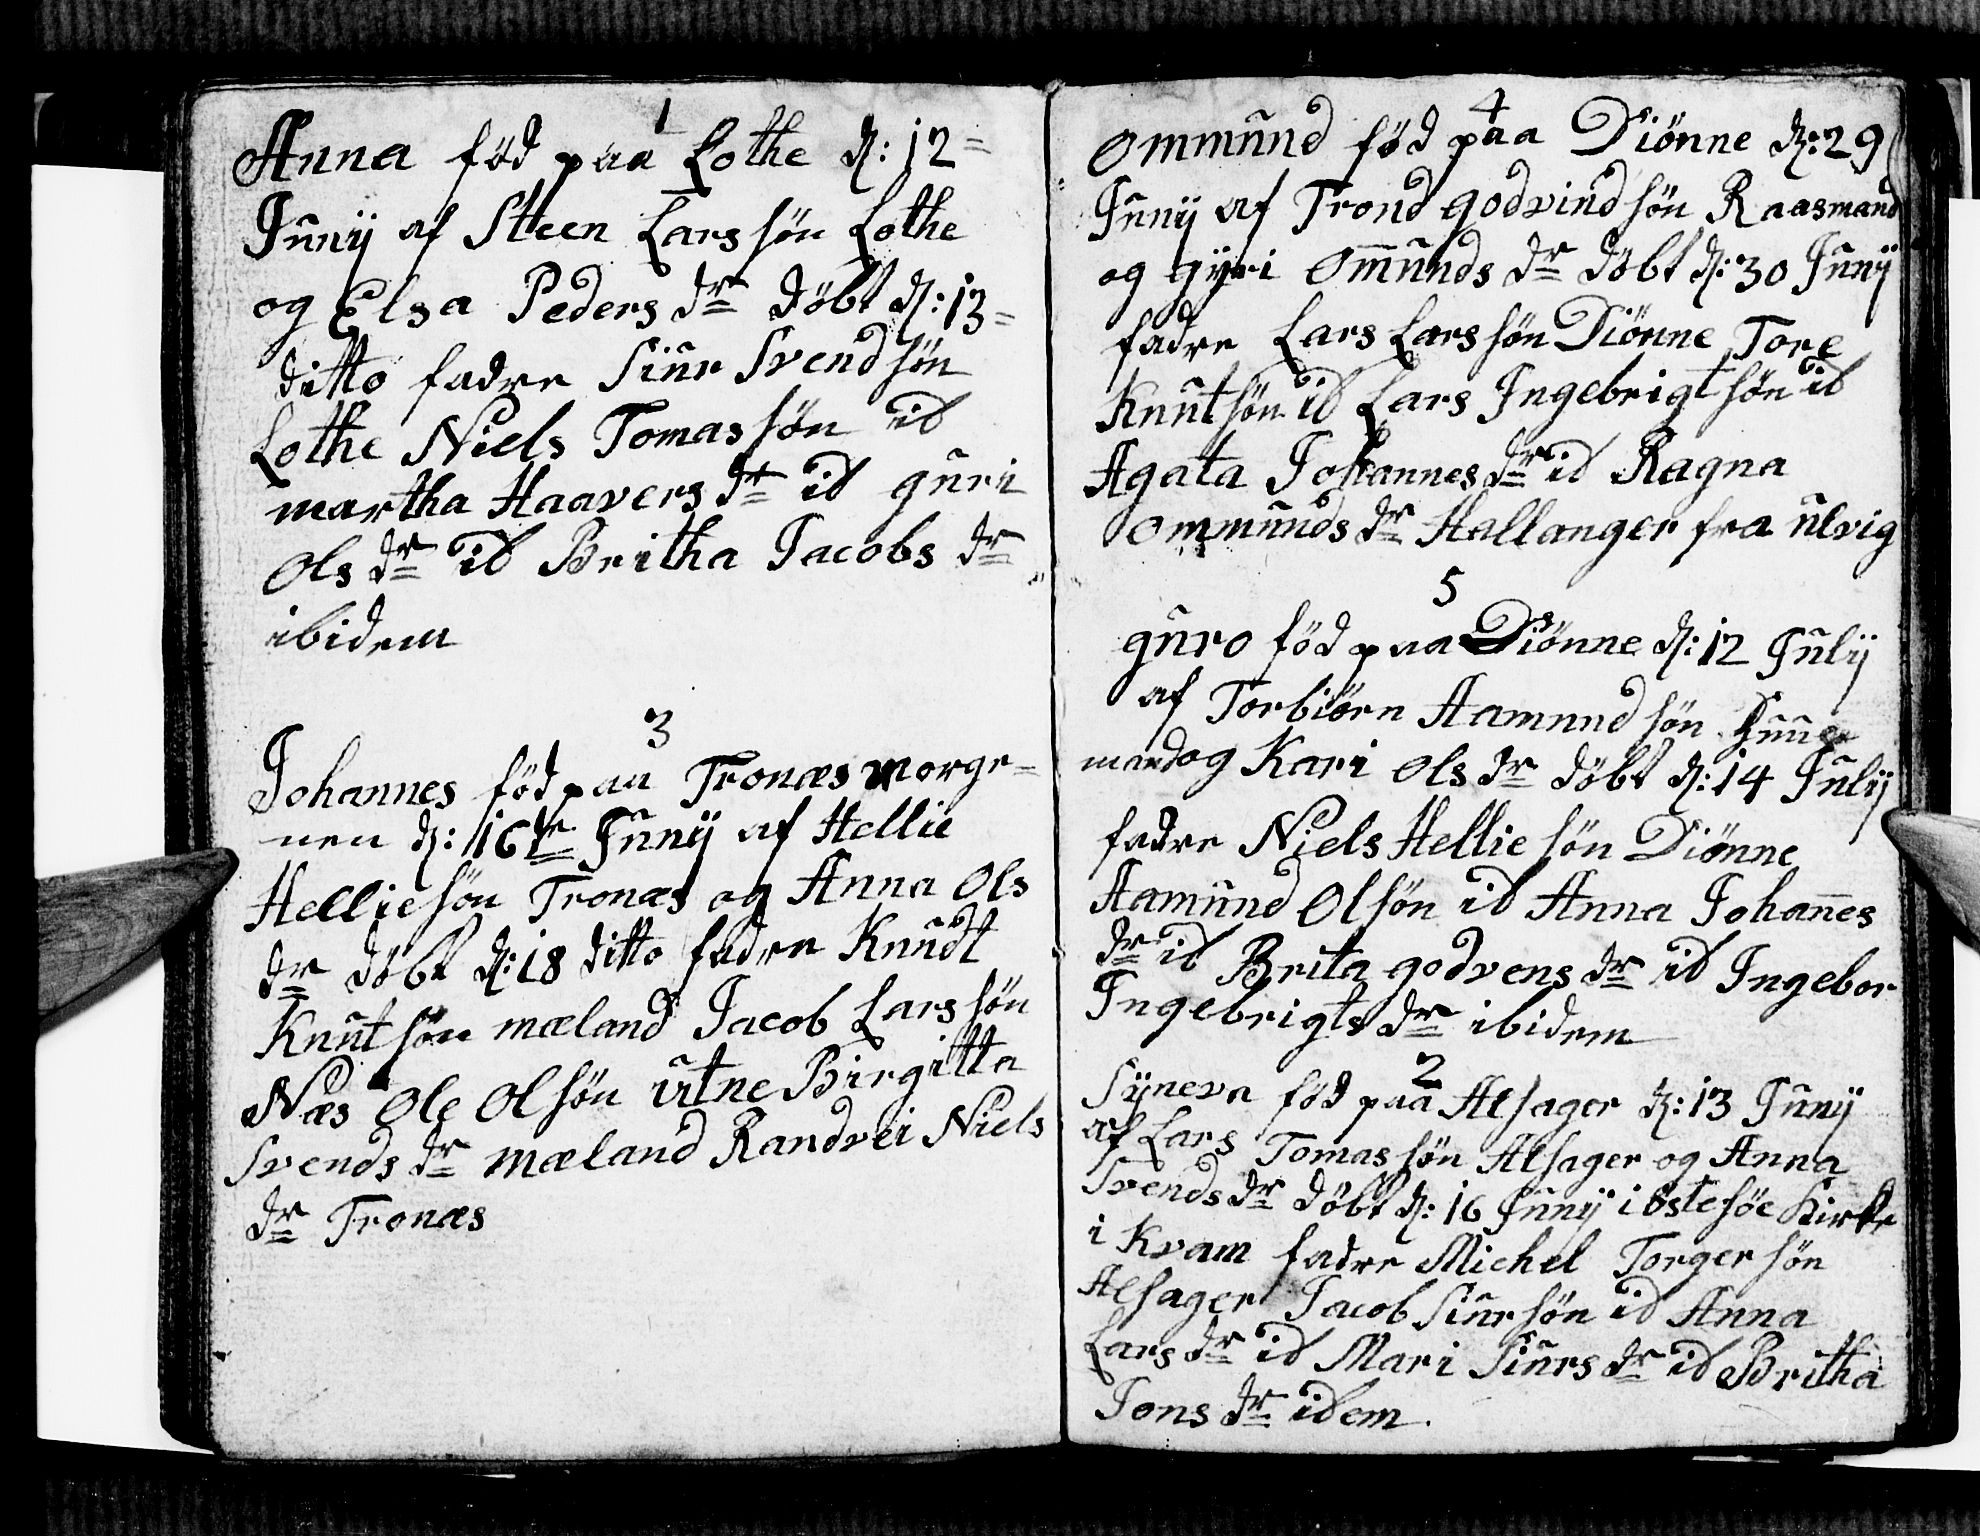 1
Anna föd paa Lothe d: 12=
Junÿ af Steen Lars søn Lothe
og Elsa Peders dr döbt d: 13=
ditto fadre Siur Svend søn
Lothe Niels Tomas søn id
martha Haavers dr id guri
Ols dr id Britha Jacobs dr
ibidem
3
Johannes föd paa Tronæs morge=
nen d: 16te Junÿ af Hellie
Hellie søn Tronæs og Anna Ols
dr döbt d: 18 ditto fadre Knudt
Knut søn mæland Jacob Lars søn
Næs Ole Olsøn utne Birgitta
Svends dr mæland Randvei Niels
dr Tronæs
4
Ommund föd paa Diönne d: 29
Junÿ af Trond godvind søn Raasmand
og gÿri Om̄unds dr döbt d: 30 Junÿ
fadre Lars Lars søn Diönne Tore
Knutsøn id Lars Ingebrigt søn id
Agata Johannes dr id Ragna
Ommunds dr Hallanger fra ulvig
5
guro föd paa Diönne d: 12 Julÿ
af Torbiörn Aamund søn
mand og Kari Ols dr döbt d: 14 Julÿ
fadre Niels Hellie søn Diönne
Aamund Olsøn id Anna Johan̄es
dr id Brita godvens dr id Ingebor
Ingebrigts dr ibidem
2
Sÿneva föd paa Alsager d: 13 Junÿ
af Lars Tomas søn Alsager og Anna
Svends dr döbt d: 16 Junÿ i östesöe Kirke
i Kvam fadre Michel Torger søn
Alsager Jacob Siur søn id Anna
Lars dr id Mari Siurs dr id Britha
Jons dr idem.